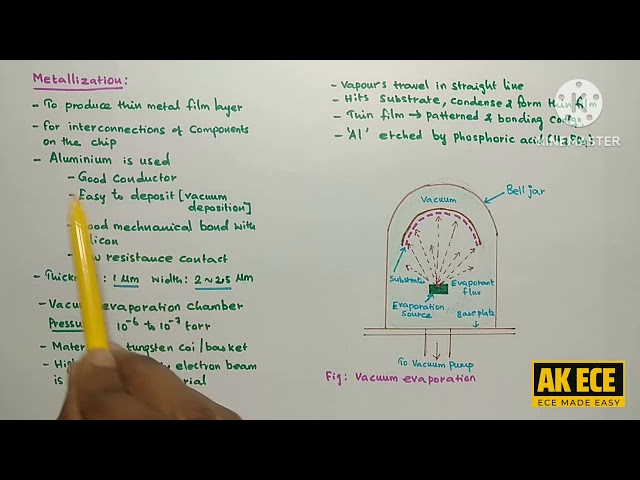 Metallization:
- To produce thin metal film layer
- For interconnections of components
on the chip
- Aluminium is used
- Good conductor
- Easy to deposit [vacuum
deposition]
Good mechnanical bond with
resistance contact
: 1 μm width: 2~25 μm
- Vacuum evaporation chamber
10⁻⁶ to 10⁻⁷ torr
tungsten coi/basket
electron beam
is
- Vapour's travel in straight line
- Hits substrate, condense & form thin film
- Thin film → patterned & bonding
- 'Al' etched by phosphoric acid
KINEMASTER
Bell jar
Vacuum
Substrate
Evaporant
flux
Evaporation
source
Base plate
To Vacuum pump
Fig: Vacuum evaporation
AK ECE
ECE MADE EASY